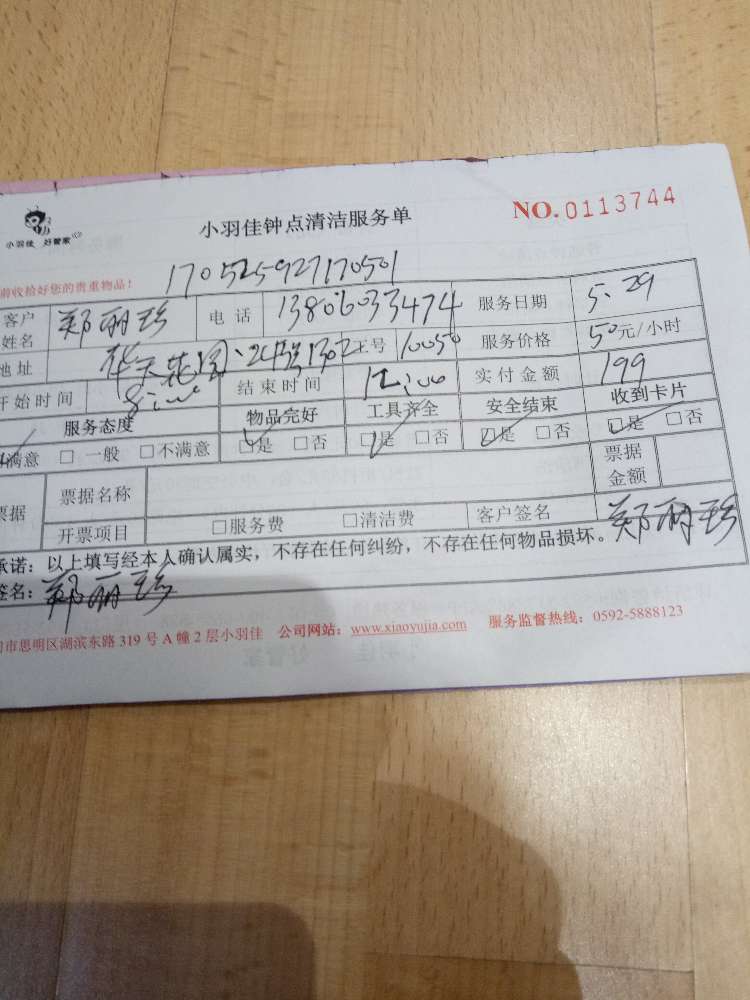 小羽佳 好管家
小羽佳钟点清洁服务单
NO.0113744
前收拾好您的贵重物品！
170525927170501
客户姓名 郑丽珍 电话 13806033474 服务日期 5.29
地址 华天花园 1302 工号 10050 服务价格 50元/小时
开始时间 8:00 结束时间 12:00 实付金额 199
服务态度 物品完好 工具齐全 安全结束 收到卡片
满意 □ 一般 □不满意 □是 □否 □是 □否 □是 □否 □是 □否
票据 票据名称 票据金额
开票项目 □服务费 □清洁费 客户签名 郑丽珍
承诺：以上填写经本人确认属实，不存在任何纠纷，不存在任何物品损坏。
签名：郑丽珍
市思明区湖滨东路 319 号 A 幢 2 层小羽佳 公司网站：www.xiaoyujia.com 服务监督热线：0592-5888123